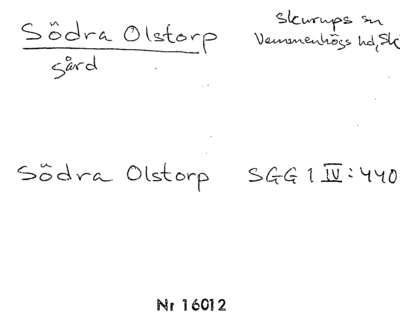 Södra Olstorp
gård
Skurups sn
Vemmenhögs hd, Sk
Södra Olstorp SGG 1 IV:440
Nr 16012